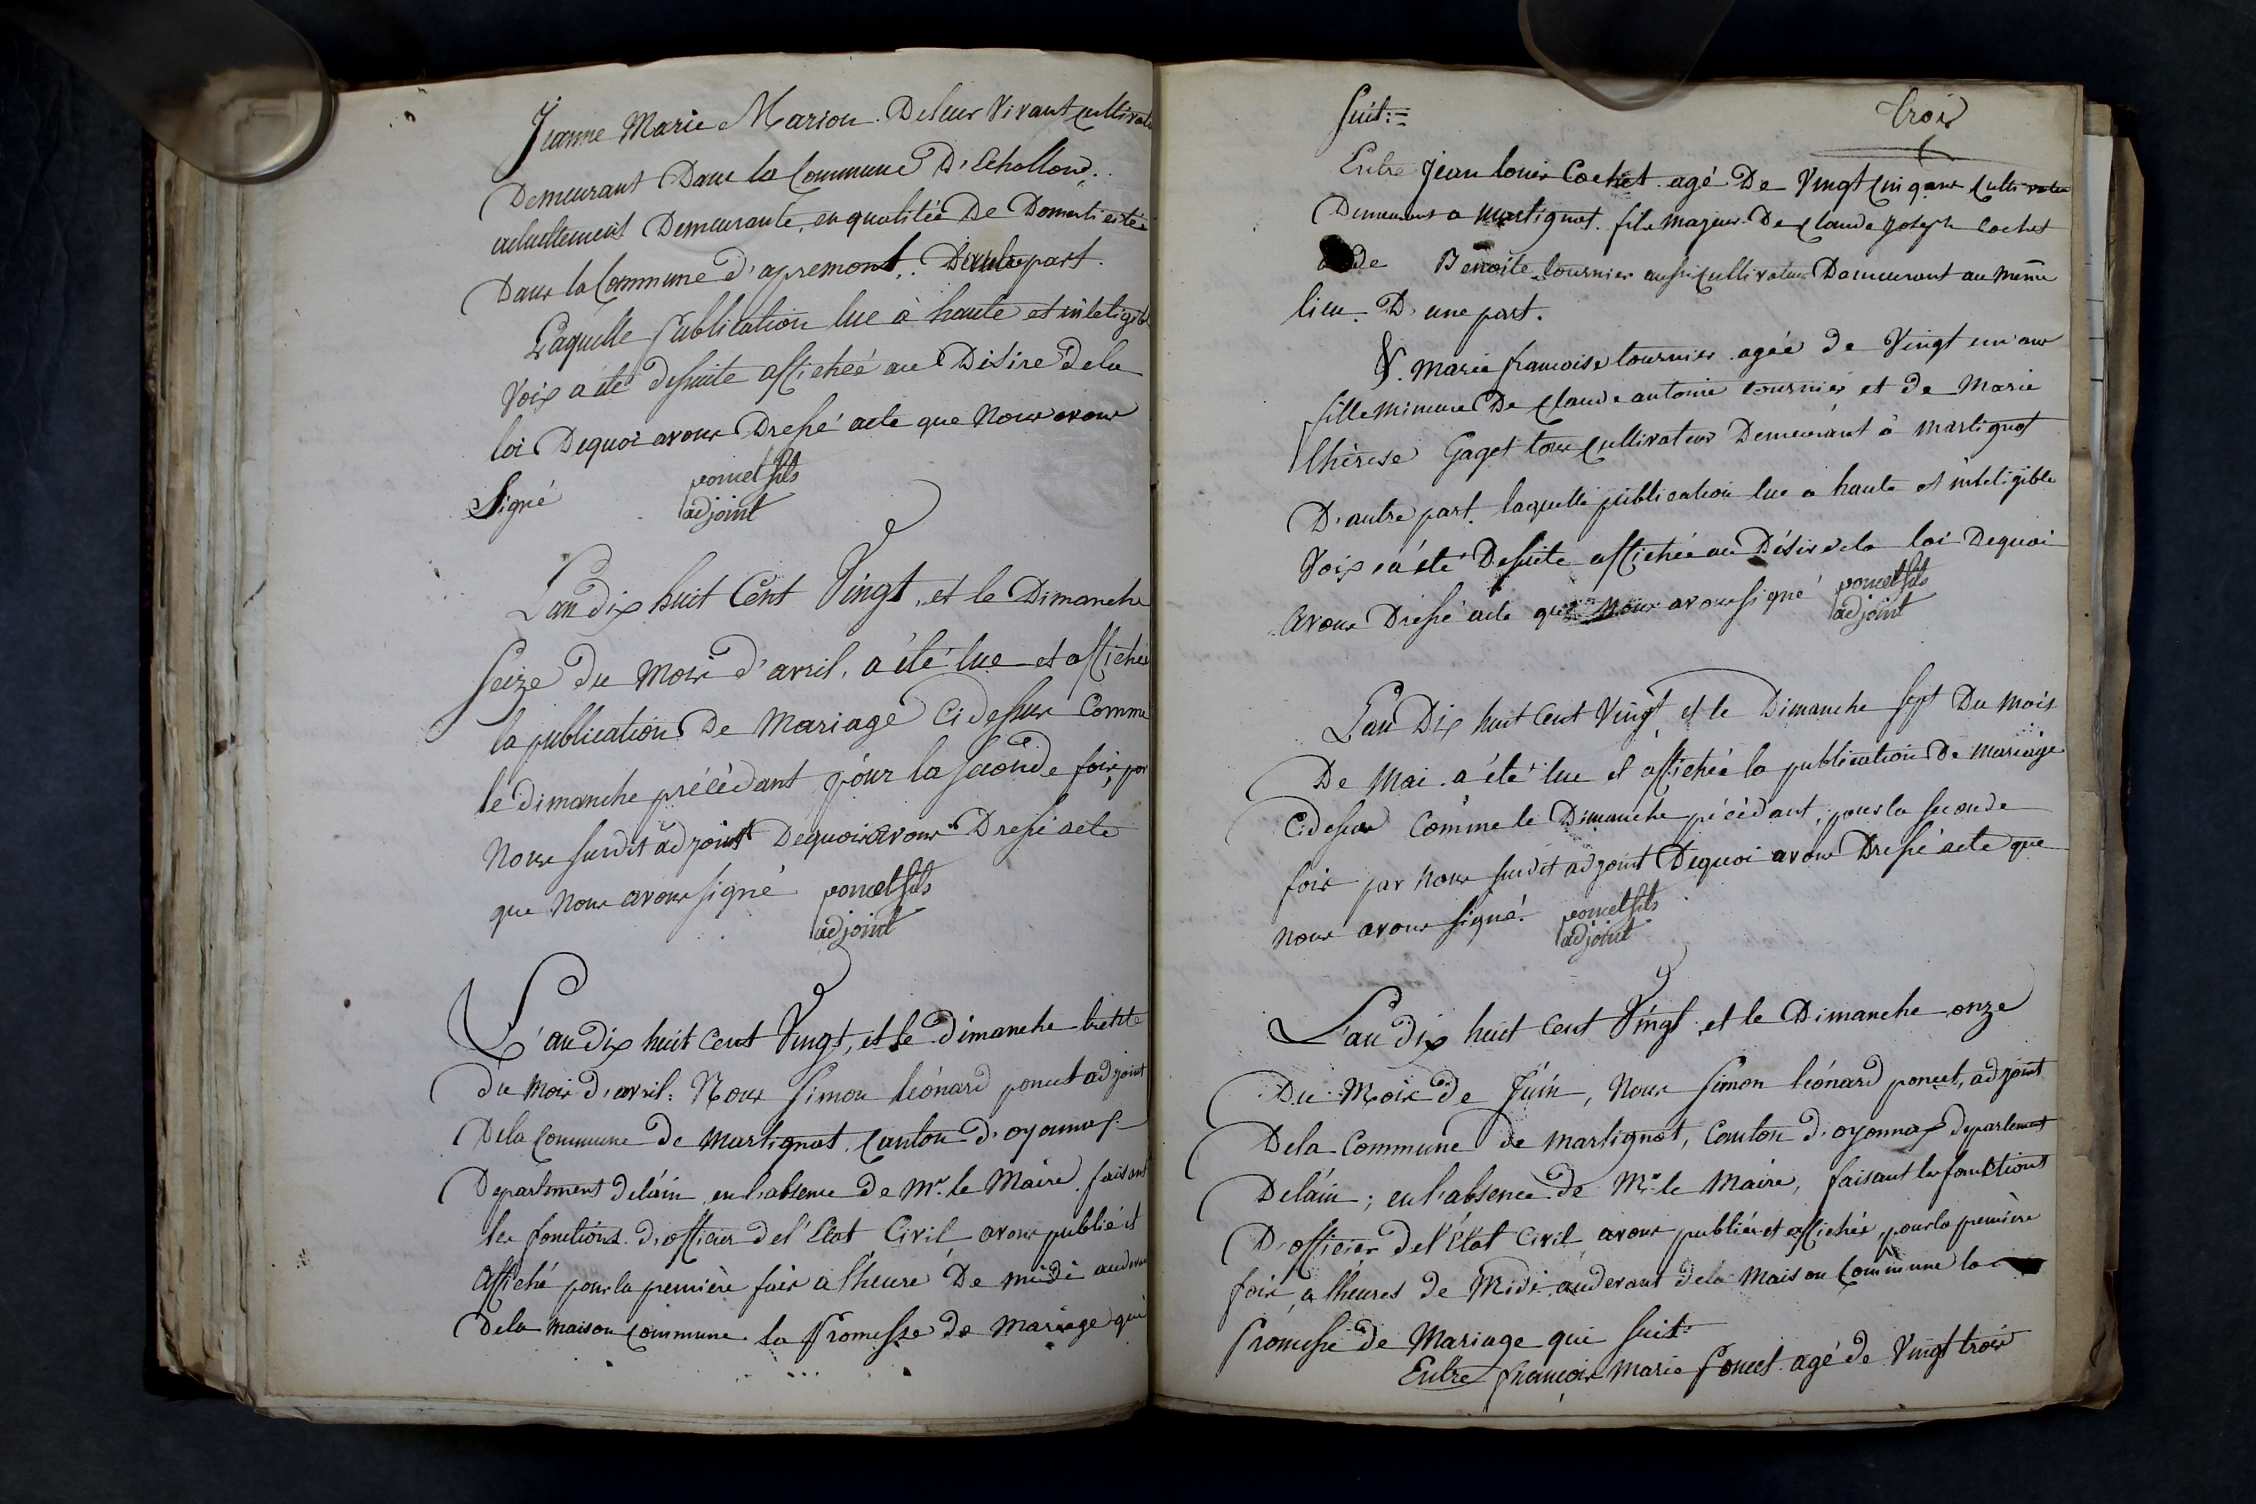 Jeanne Marie Marion. De leur Vivant cultivate
Demeurant Dans la Commune D'Echallond.
actuellement Demeurante, en qualitée De Domestiestée
Dans la Commune d'apremont. D'autre part.
Laquelle Publication lue à haute et inteligible
Voix a été desuite affichée au Désire de la
loi Dequoi avons Dressé acte que Nous avons
Signé
poncet fils
adjoint
L'an dix huit Cent Vingt, et le Dimanche
Seize du Mois d'avril, a été lue et affichée
la publication De Mariage Cidessus Comme
le dimanche précèdant pour la seconde fois, par
Nous susdit adjoint Dequoi avons Dressé acte
que Nous avons signé poncet fils
adjoint
L'an dix huit Cent Vingt, et le dimanche trente
du Mois d'avril. Nous Simon léonard poncet adjoint
Dela Commune de Martignat, Canton d'oyonnax
Departement delain, en l'absence de Mr. le Maire, faisant
les fonctions d'officier del'Etat Civil avons publié et
Affiché pour la première fois a l'heure De midi audevan
Dela Maison Commune la Promesse de Mariage qui
Suit:=
trois
Entre Jean louis Cochet agé De Vingt Cinq ans Cultivateu
Demeurant a Martignat. fils majeur De Claude Joseph Cochet
de Benoite tournier aussi Cultivateur Demeurant au même
lieu. D'une part.
&. Marie francoise tournier agée de Vingt un ans
fille Mineure De Claude antoine tournier et de Marie
thèrese Gaget tous Cultivateurs Demeurant à Martignat
D'autre part. laquelle publication lue a haute et inteligible
Voix a été Desuite affichée au Désir dela loi Dequoi
avons Dressé acte que Nous avons signé poncet fils
adjoint
L'an Dix huit Cent Vingt et le Dimanche sept Du Mois
De Mai a été lue et affichée la publication De mariage
Cidessus Comme le Dimanche pécèdant, pour la seconde
fois par Nous susdit adjoint Dequoi avons Dressé acte que
nous avons signé. poncet fils
adjoint
L'an dix huit Cent Vingt, et le Dimanche onze
Du Mois de Juin, Nous Simon léonard poncet, adjoint
Dela Commune de Martignat, Canton d'oyonnax departement
Delain; en l'absence de Mr. le Maire, faisant les fonctions
D'officier del'Etat Civil avons publiée et affichée, pour la première
fois, a lheures de Midi audevant dela Maison Commune la
Promesse de Mariage qui suit:
Entre francois Marie Poncet agé de Vingt trois